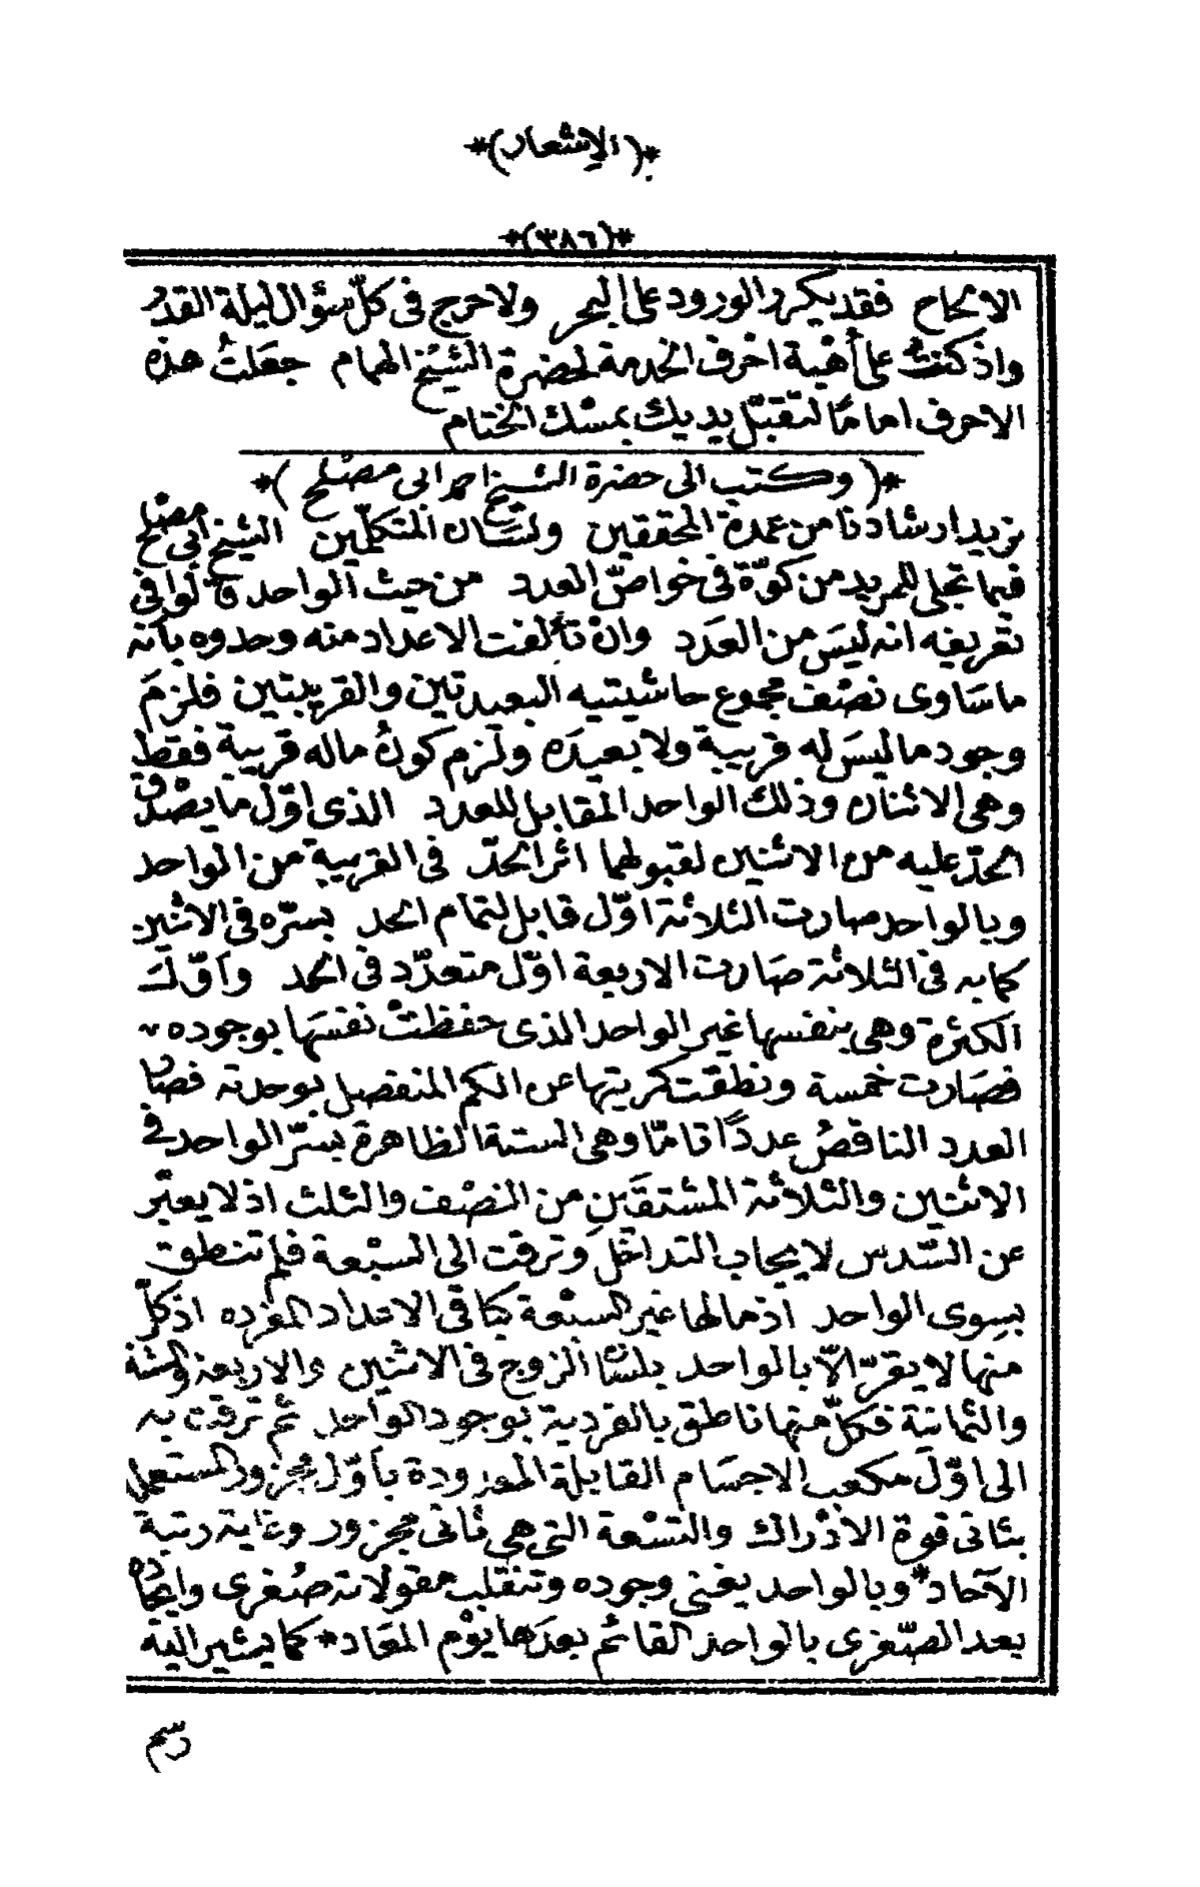 *(الاشعار)*
*(٣٨٦)*
الالحاح فقد يكرر الورود على البحر ولا حرج فى كلّ سؤال ليلة القدر
واذ كنت على أهْبة اخرف الخدمة لحضرة الشيخ الهمام جعلتُ هذه
الاحرف امامًا لتقبّل يديك بمسْك الختام
*( وكتب الى حضرة الشيخ احمد ابى مصْلح )*
نريد ارشادنا من عمدة المحققين ولسَان المتكلّمين الشيخ أبى مصْلح
فيما تجلى للمريد من كوّة فى خواصّ العدد من حيث الواحد قالوا فى
تعريفه انه ليسَ من العَدد وانْ تألفت الاعداد منه وحدوه بأنه
ما سَاوى نصْف مجموع حاشيتيه البعيدتين والقريبتين فلزمَ
وجود ما ليسَ له قريبة ولا بعيدَه ولزم كونُ ماله قريبة فقط
وهى الاثنان وذلك الواحد المقابل للعدد الذى اوّل ما يصْدق
الحدّ عليه من الاثنين لقبولهما اثر الحدّ فى القريبة من الواحد
وبالواحد صارت الثلاثة اوّل قابل لتمام الحد بسرّه فى الاثنين
كما به فى الثلاثة صَارت الاربعة اوّل متعدّد فى الحد واوّل
الكثرة وهى بنفسها غير الواحد الذى حفظتْ نفسَها بوجوده
فصَارت خمسة ونطقت كريتها عن الكم المنفصل بوحدته فصار
العدد الناقصُ عددًا تامّا وهى الستة الظاهرة بسرّ الواحد فى
الاثنين والثلاثة المشتقَين من النصْف والثلث اذ لا يعبّر
عن السّدس لايجاب التداخل وترقت الى السبْعة فلم تنطق
بسِوى الواحد اذ مالها غير السبْعة كباقى الاعداد المفرده اذ كلّ
منها لا يقرّ الّا بالواحد بلسَان الزوج فى الاثنين والاربعة والستة
والثمانية فكلّ منها ناطق بالفردية بوجود الواحد ثم ترقت به
الى اوّل مكعب الاجسَام القابلة المعدودة بأوّل مجزور المستعمل
بثانى قوة الادْراك والتسْعة التى هى ثانى مجزور وغاية رتبة
الآحاد* وبالواحد يغنى وجوده وتنقلب مقولاته صُغرى وايجاده
بعد الصّغرى بالواحد القائم بعدَها يوْم المعَاد* كما يشير اليه
رسم